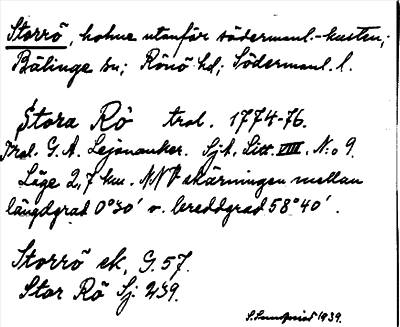 Storrö, holme utanför södermanl.-kusten,;
Bälinge sn; Rönö hd; Södermanl. l.
Stora Rö trol. 1774-76.
Trol. G. A. Lejonanker. Sjk. Litt. VIII. N:o 9.
Läge 2,7 km. NNV skärningen mellan
längdgrad 0°30' o. breddgrad 58°40'.
Storrö ek. G. 57.
Stor Rö Sj: 239.
S. Sundqvist 1939.